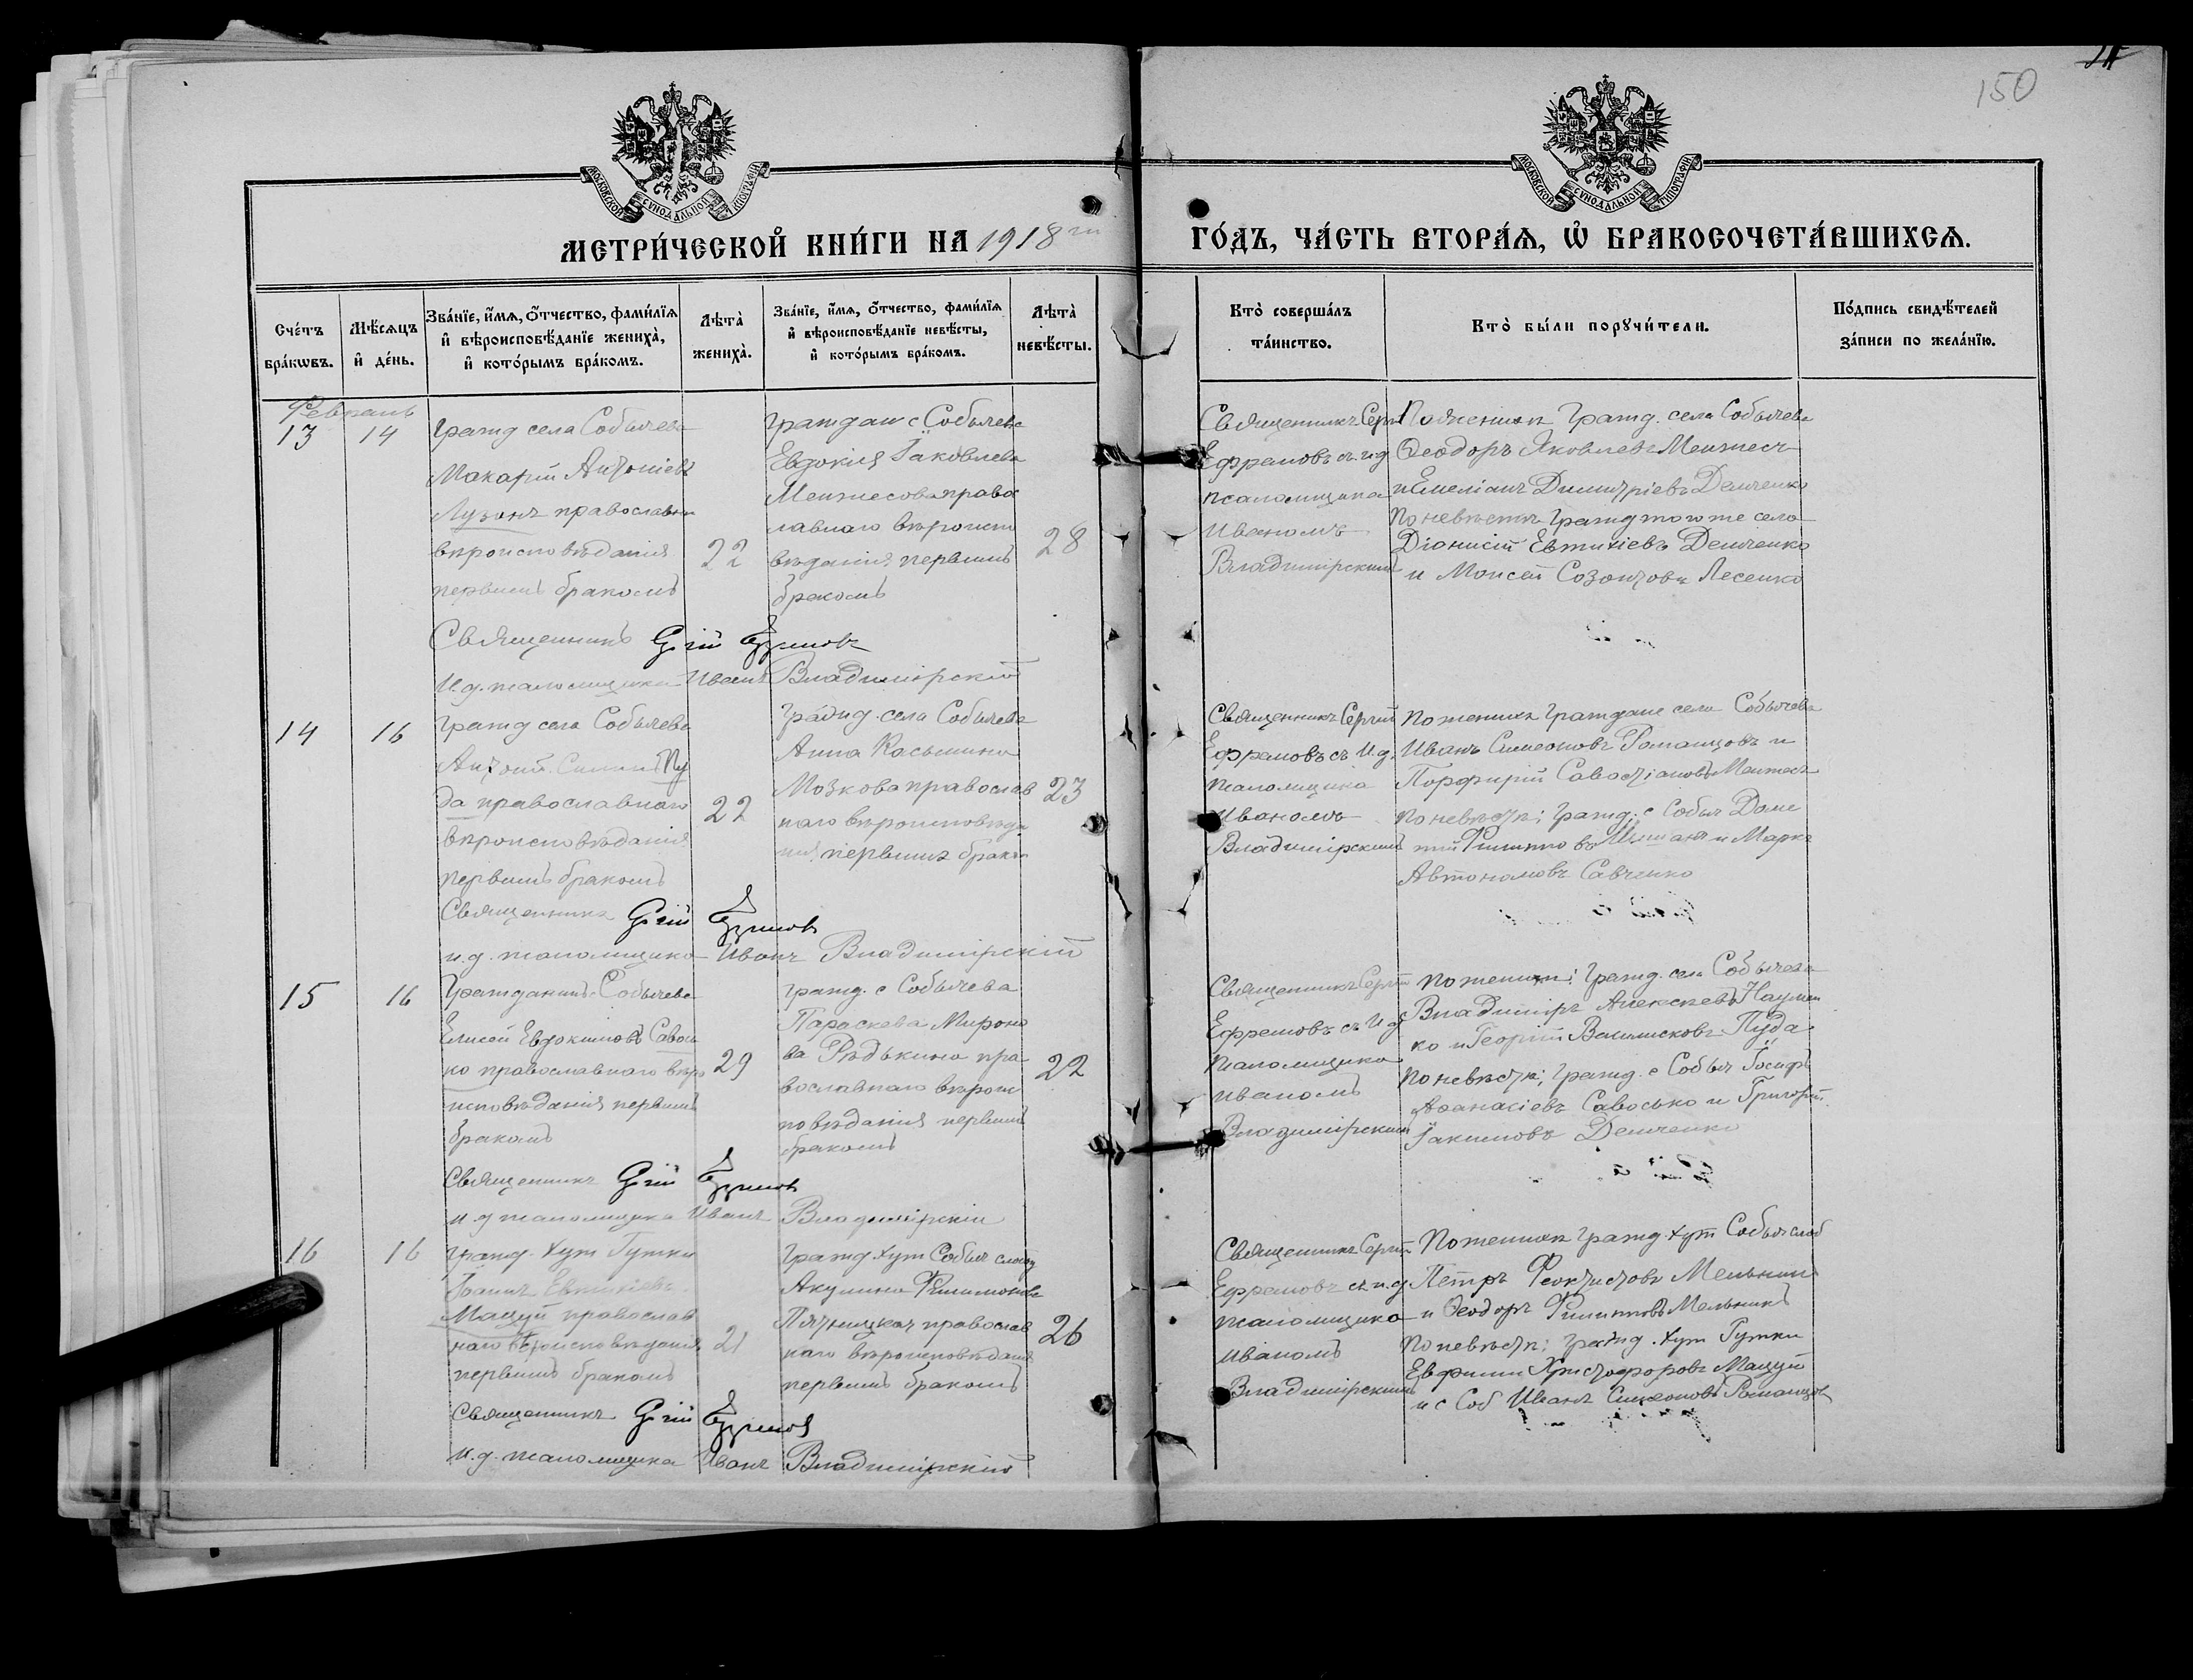 150
МОСКОВСКОЙ СѴНОДАЛЬНОЙ ТИПОГРАФІИ
МОСКОВСКОЙ СѴНОДАЛЬНОЙ ТИПОГРАФІИ
МЕТРИ́ЧЕСКОЙ КНИ́ГИ НА 1918 го
ГО́ДЪ, ЧА́СТЬ ВТОРА́Ѧ, Ѡ҆ БРАКОСОЧЕТА́ВШИХСѦ.
Сче́тъ бра́кѡвъ.
Мѣ́сѧцъ и҆ де́нь.
Зва́нїе, и҆́мѧ, ѻ҆́тчество, фами́лїѧ
и҆ вѣроисповѣ́данїе жениха̀,
и҆ кото́рымъ бра́комъ.
Лѣта̀ жениха̀.
Зва́нїе, и҆́мѧ, ѻ҆́тчество, фами́лїѧ
и҆ вѣроисповѣ́данїе невѣ́сты,
и҆ кото́рымъ бра́комъ.
Лѣта̀ невѣ́сты.
Кто̀ соверша́лъ та́инство.
Кто̀ бы́ли порꙋчи́тели.
По́дпись свидѣ́телей за́писи по жела́нїю.
Февраль
13
14
Гражд села Собычева
Макарій Антоніевъ
Лузанъ православн
вѣроисповѣданія
первымъ бракомъ
22
Граждан с Собычева
Евдокия Іаковлева
Мензесова правос
лавнаго вѣроиспо
вѣданія первымъ
бракомъ
28
Священникъ Сергій
Ефремовъ съ и д
псаломщика
Иваномъ
Владимірскимъ
По женихѣ Гражд. села Собычева
Ѳеодоръ Яковлевъ Мензесъ
и Емеліанъ Димитріевъ Демченко
По невѣстѣ Гражд того же села
Діонисій Евтихіевъ Демченко
и Моисей Созонтовъ Лесенко
Священникъ Сергій Ефремовъ
И.д. псаломщика Иванъ Владимірскій
14
16
Гражд села Собычева
Антоній Пу
да православнаго
вѣроисповѣданія
первымъ бракомъ
22
Гражд. села Собычева
Анна Косьмина
Мозкова православ
наго вѣроисповѣда
нія первымъ брако
23
Священникъ Сергій
Ефремовъ съ И.д.
псаломщика
Иваномъ
Владимірскимъ
По женихѣ Граждане села Собычева
Иванъ Симеоновъ Романцовъ и
Порфирій Савостіановъ Мензесъ
По невѣстѣ; Гражд. с Собыч Доме
и Маркъ
Автономовъ Савченко
Священникъ Сергій Ефремовъ
и.д. псаломщика Иванъ Владимірскій
15
16
Гражданинъ с Собычева
Елисей Евдокимовъ Савось
ко православнаго вѣро
исповѣданія первымъ
бракомъ
29
Гражд. с Собычева
Параскева Мироно
ва Рѣдькина пра
вославнаго вѣроис
повѣданія первымъ
бракомъ
22
Священникъ Сергій
Ефремовъ съ И д
псаломщика
Иваномъ
Владимірскимъ
По женихѣ; Гражд. села Собычева
Владиміръ Алексѣевъ Наумен
ко и Георгій Пуда
По невѣстѣ; Гражд. с Собыч Іосифъ
Аѳанасіевъ Савосько и Григорій
Іакимовъ Демченко
Священникъ Сергій Ефремовъ
и д псаломщика Иванъ Владимірскій
16
16
Гражд. хут Гутки
Іоаннъ Евтихіевъ
Мацуй православ
наго вѣроисповѣданія
первымъ бракомъ
21
Гражд хут Собыч слобод
Акулина Филимонова
Пятницкая православ
наго вѣроисповѣданія
первымъ бракомъ
26
Священникъ Сергій
Ефремовъ съ и.д
псаломщика
Иваномъ
Владимірскимъ
По женихѣ Гражд. хут Собыч слоб
Петръ Феоктистовъ Мельник
и Ѳеодоръ Филипповъ Мельникъ
По невѣстѣ; Гражд. хут Гутки
Евфимій Христофоровъ Мацуй
и с Соб Иванъ Симеоновъ Романцов
Священникъ Сергій Ефремовъ
И.д. псаломщика Иванъ Владимірскій